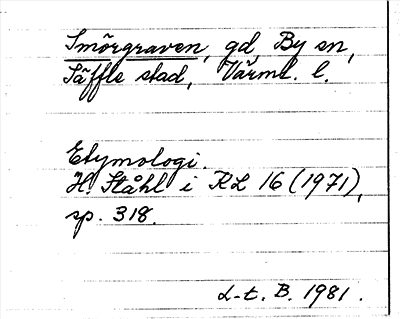 Smörgraven, gd, By sn,
Säffle stad, Värml. l.
Etymologi.
H. Ståhl i RL 16 (1971),
sp. 318.
L-t. B. 1981.